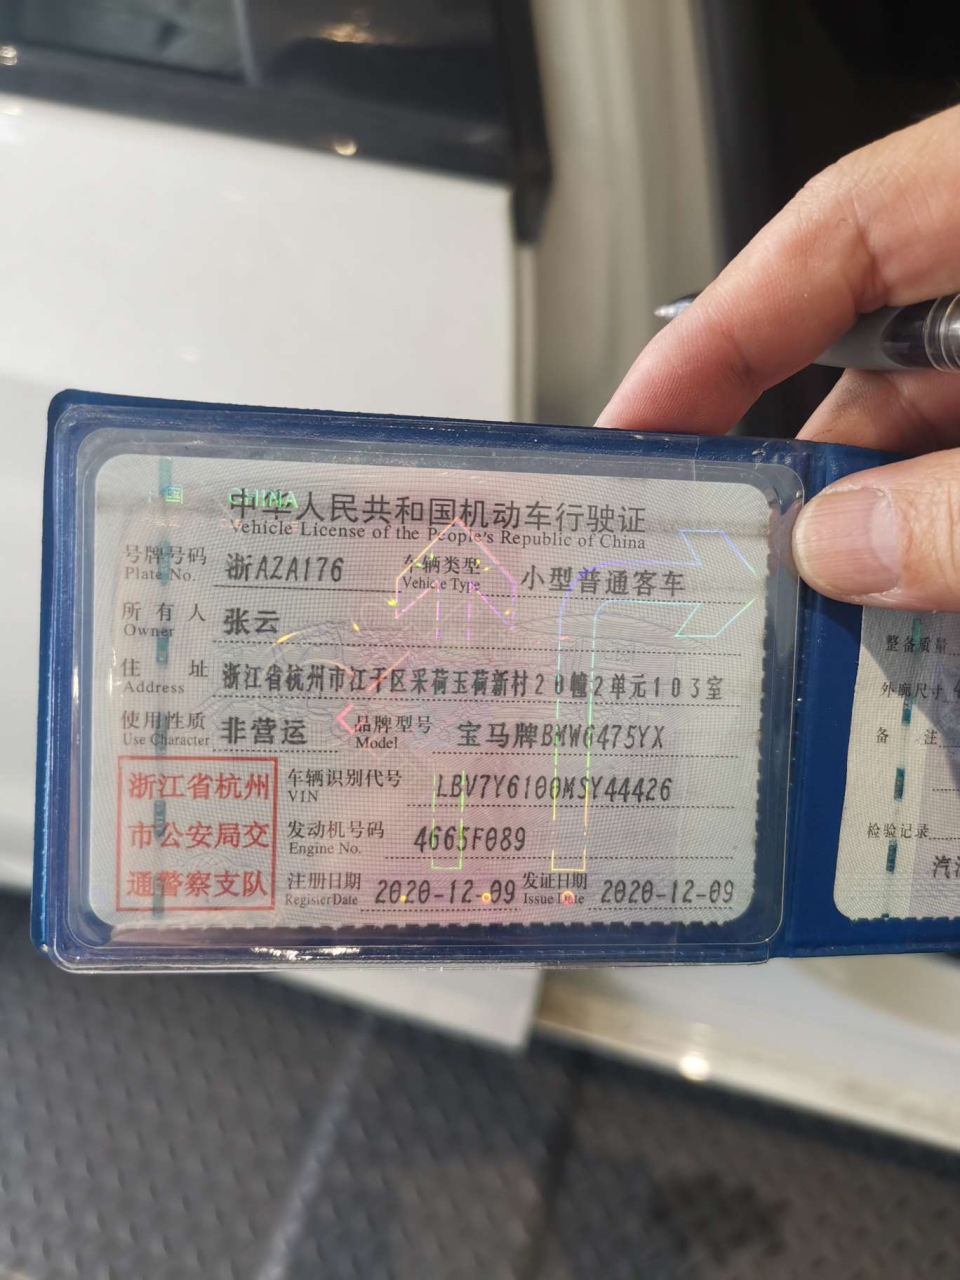 CHINA
中华人民共和国机动车行驶证
Vehicle License of the People's Republic of China
号牌号码 浙AZA176 车辆类型 小型普通客车
Plate No. Vehicle Type
所有人 张云
Owner
住址 浙江省杭州市江干区采荷玉荷新村20幢2单元103室
Address
使用性质 非营运 品牌型号 宝马牌BMW6475YX
Use Character Model
浙江省杭州
市公安局交
通警察支队
车辆识别代号 LBV7Y6100MSY44426
VIN
发动机号码 4665F089
Engine No.
注册日期 2020-12-09 发证日期 2020-12-09
Register Date Issue Date
整备质量
外廓尺寸
备注
检验记录